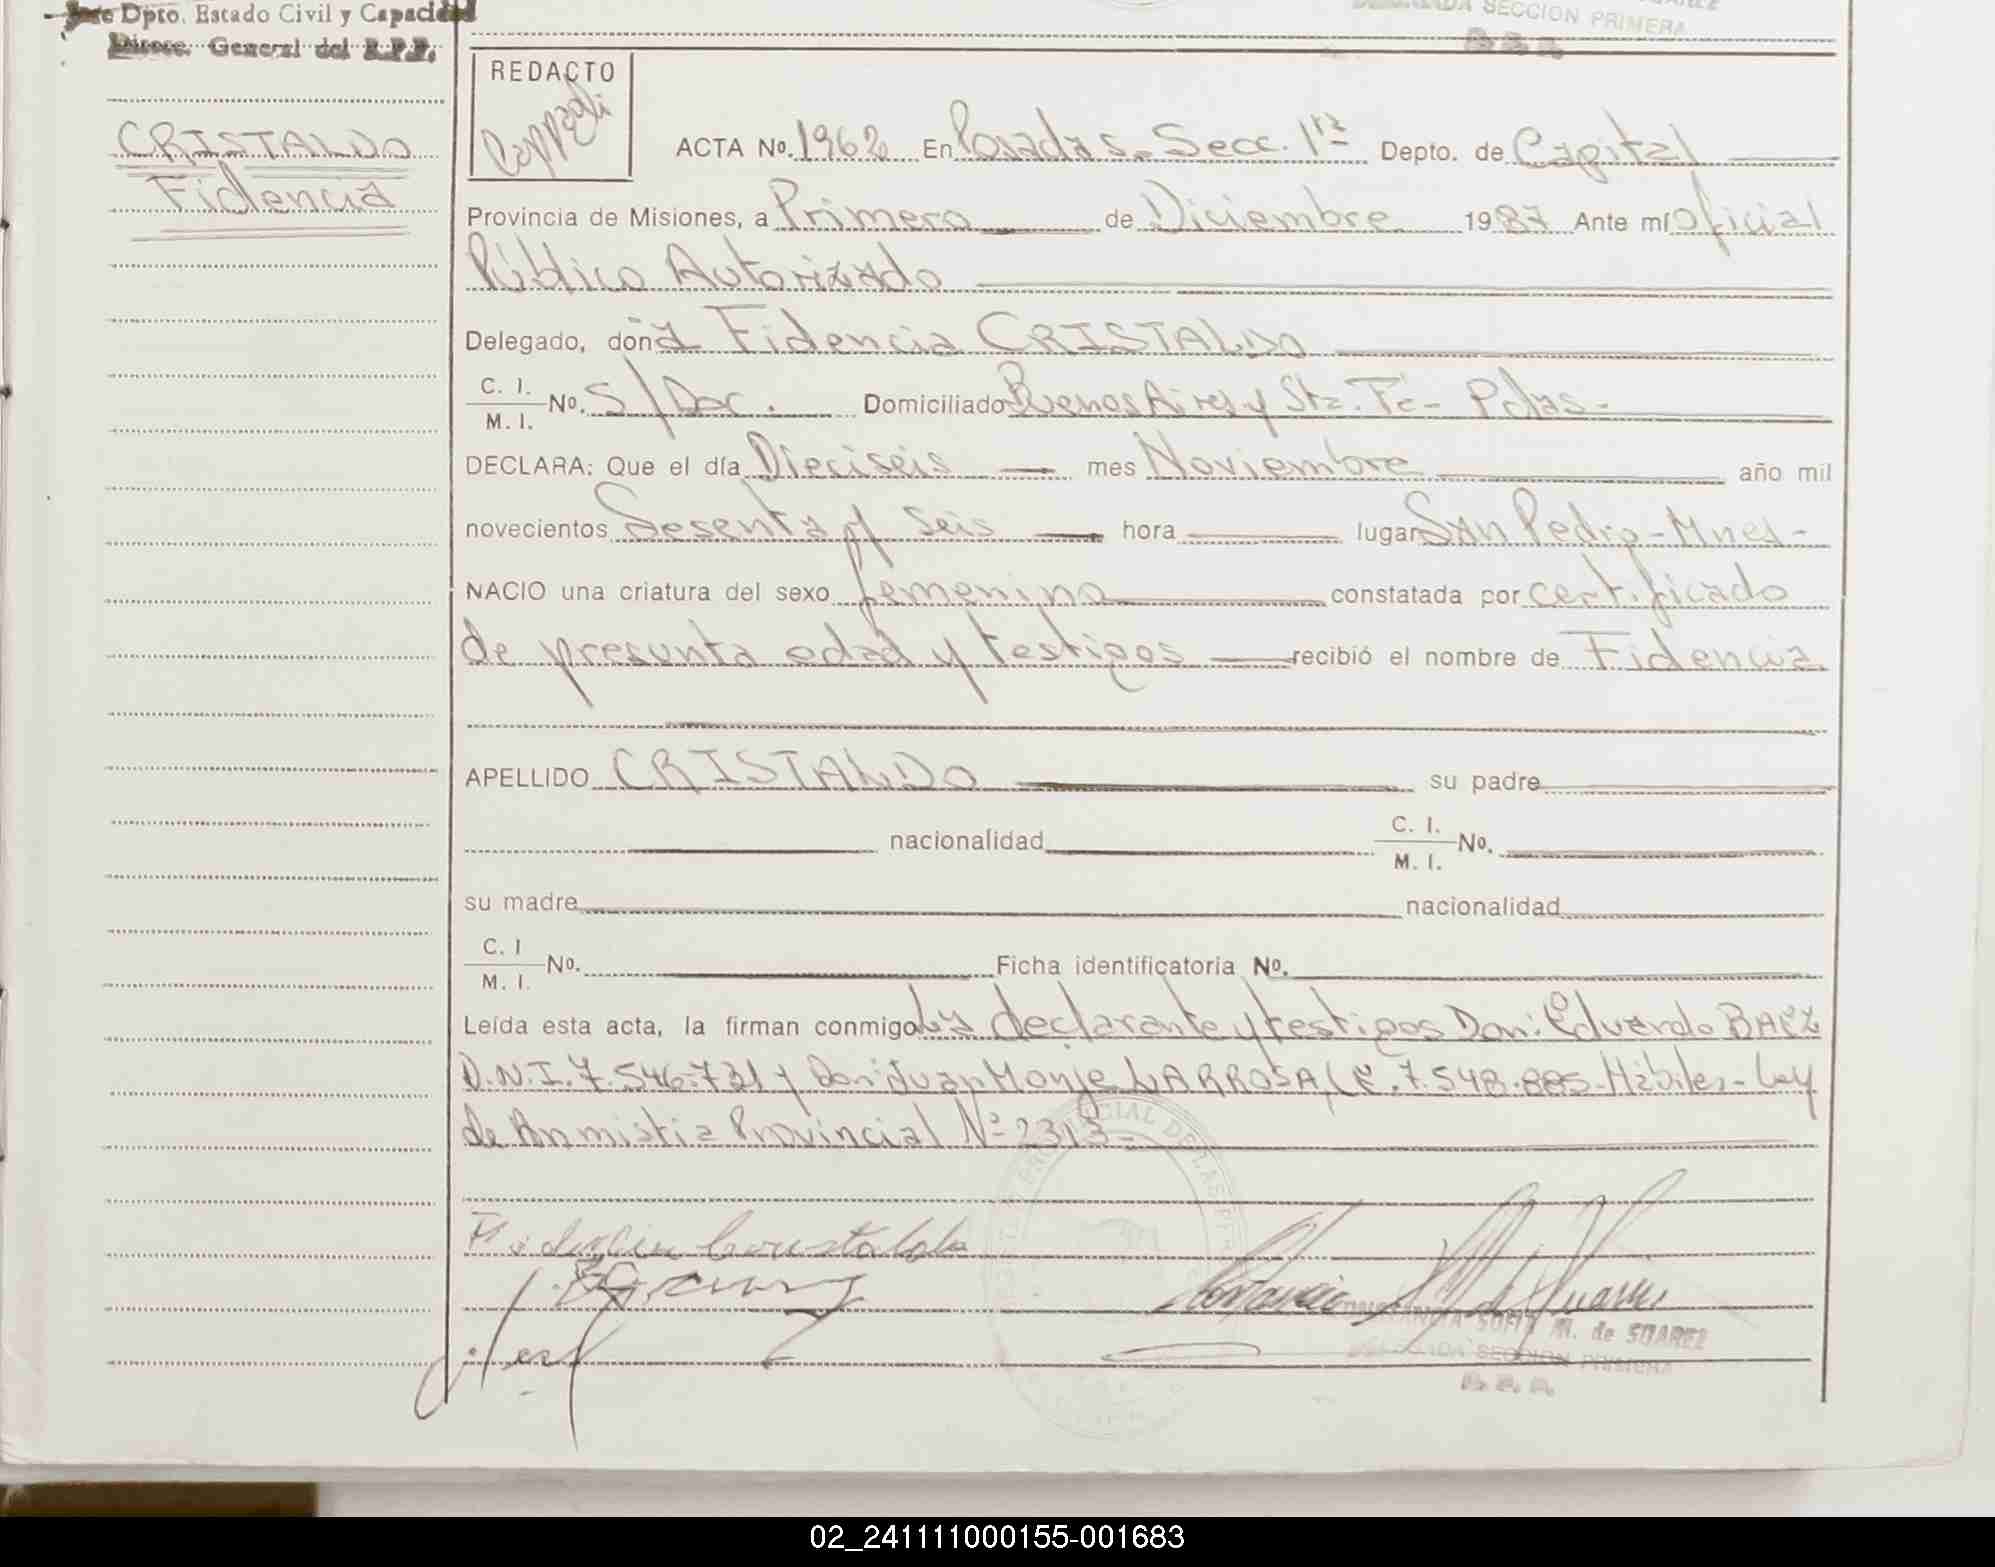 Jefe Dpto. Estado Civil y Capacidad
Direcc. General del R.P.P.
SECCION PRIMERA
CRISTALDO
Fidencia
REDACTO
ACTA No. 1962 En Posadas - Secc. 1ra Depto. de Capital
Provincia de Misiones, a Primero de Diciembre 1987 Ante mí oficial
Público Autorizado
Delegado, doña Fidencia CRISTALDO
C. I. / M. I. No. S/Doc. Domiciliado Buenos Aires y Sta. Fé - Pdas -
DECLARA: Que el día Dieciseis mes Noviembre año mil
novecientos Sesenta y Seis hora lugar San Pedro - Mnes -
NACIO una criatura del sexo femenino constatada por certificado
de presunta edad y testigos recibió el nombre de Fidencia
APELLIDO CRISTALDO su padre
nacionalidad C. I. / M. I. No.
su madre nacionalidad
C. I / M. I. No. Ficha identificatoria No.
Leída esta acta, la firman conmigo La declarante y testigos Don: Eduardo BAEZ
D.N.I. 7.546.731 y Don: Juan Monje LARROSA, L.E. 7.548.885 - Hábiles - Ley
de Anmistia Provincial Nº 2313 -
Fidencia Cristaldo
CONSTANCIA SOFIA M. de SUAREZ
DELEGADA SECCION PRIMERA
02_241111000155-001683